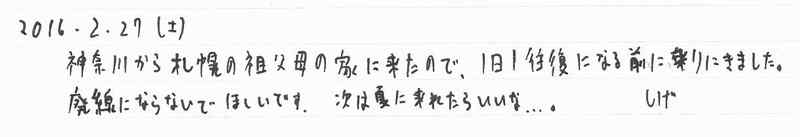 2016.2.27 (土)
神奈川から札幌の祖父母の家に来たので、1日1往復になる前に乗りにきました。
廃線にならないでほしいです. 次は夏に来れたらいいな...。 しげ